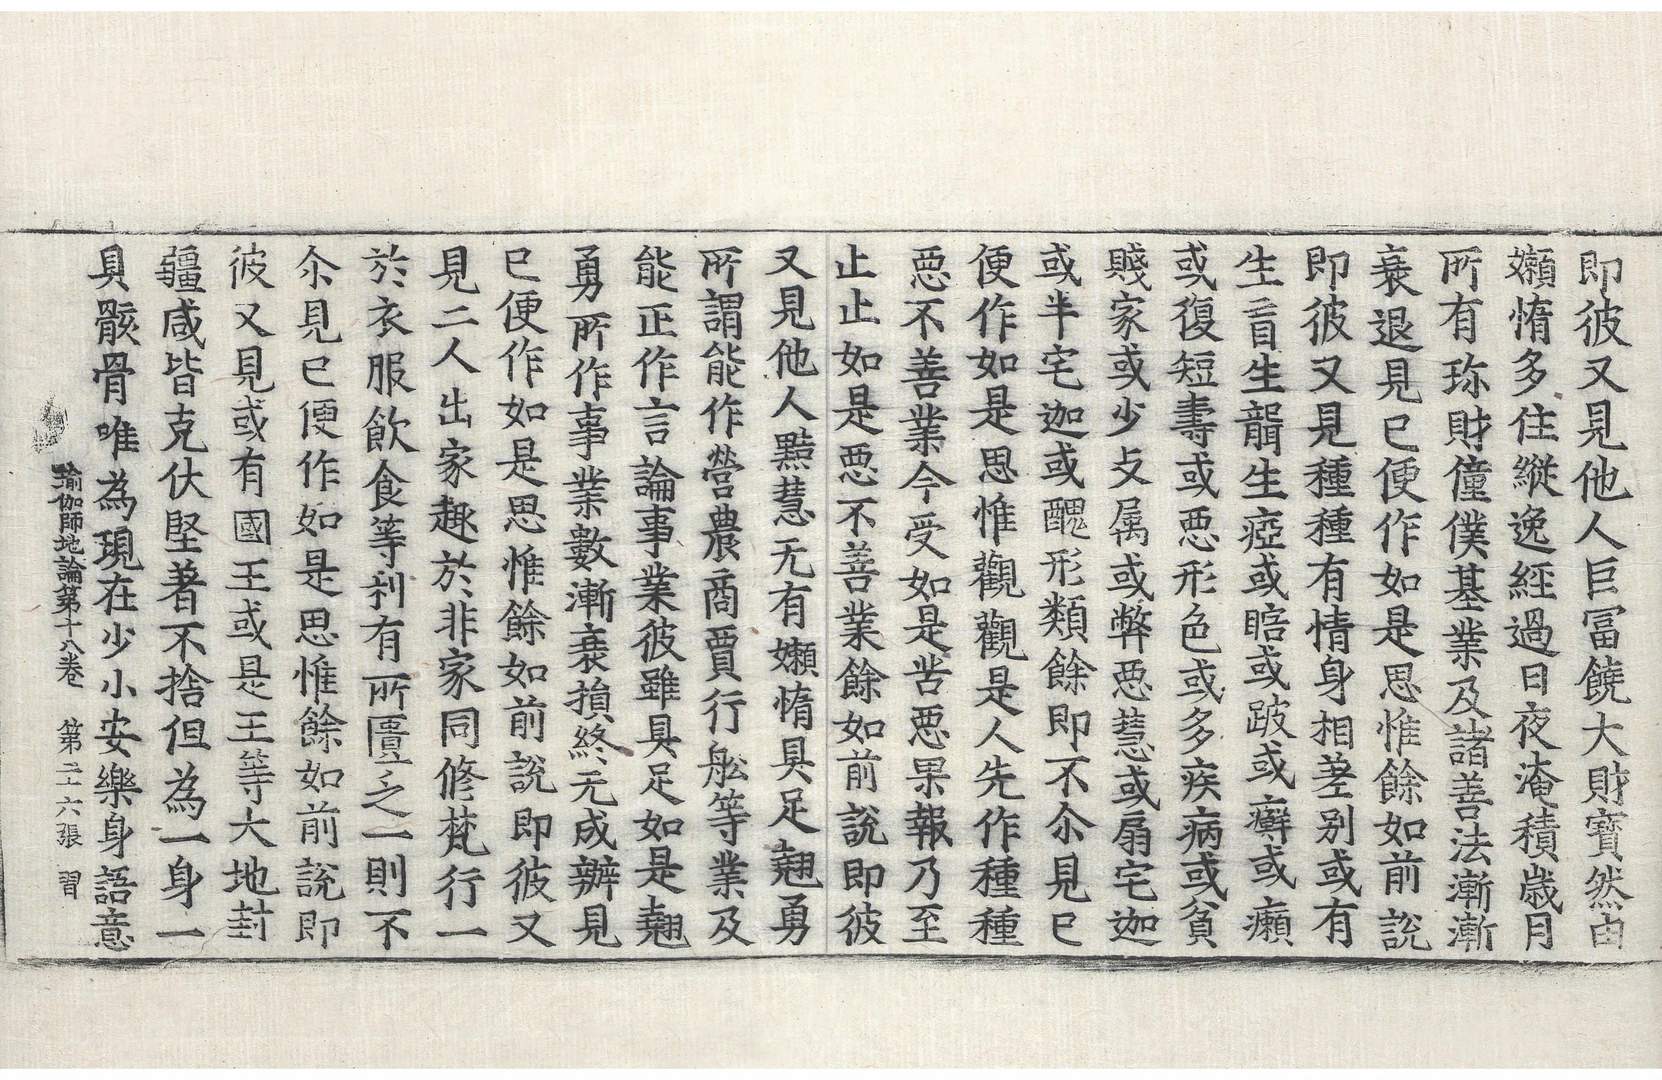 即彼又見他人巨冨饒大財寳然由
嬾惰多住縱逸經過日夜淹積歲月
所有珎財僮僕基業及諸善法漸漸
衰退見已便作如是思惟餘如前說
即彼又見種種有情身相差别或有
生盲生聾生瘂或䀨或跛或癬或癩
或復短壽或悪形色或多疾病或貧
賤家或少攴属或弊悪慧或扇宅迦
或半宅迦或醜形類餘即不尒見已
便作如是思惟觀觀是人先作種種
悪不善業今受如是苦悪果報乃至
止止如是悪不善業餘如前說即彼
又見他人黠慧无有嬾惰具足翹勇
所謂能作營農商賈行舩等業及
能正作言論事業彼雖具足如是翹
勇所作事業數漸衰損終无成辦見
已便作如是思惟餘如前說即彼又
見二人出家趣於非家同修梵行一
於衣服飲食等利有所匱乏一則不
尒見已便作如是思惟餘如前說即
彼又見或有國王或是王等大地封
疆咸皆克伏堅著不捨但為一身一
具骸骨唯為現在少小安樂身語意
瑜伽師地論第十八卷　第二十六張　習